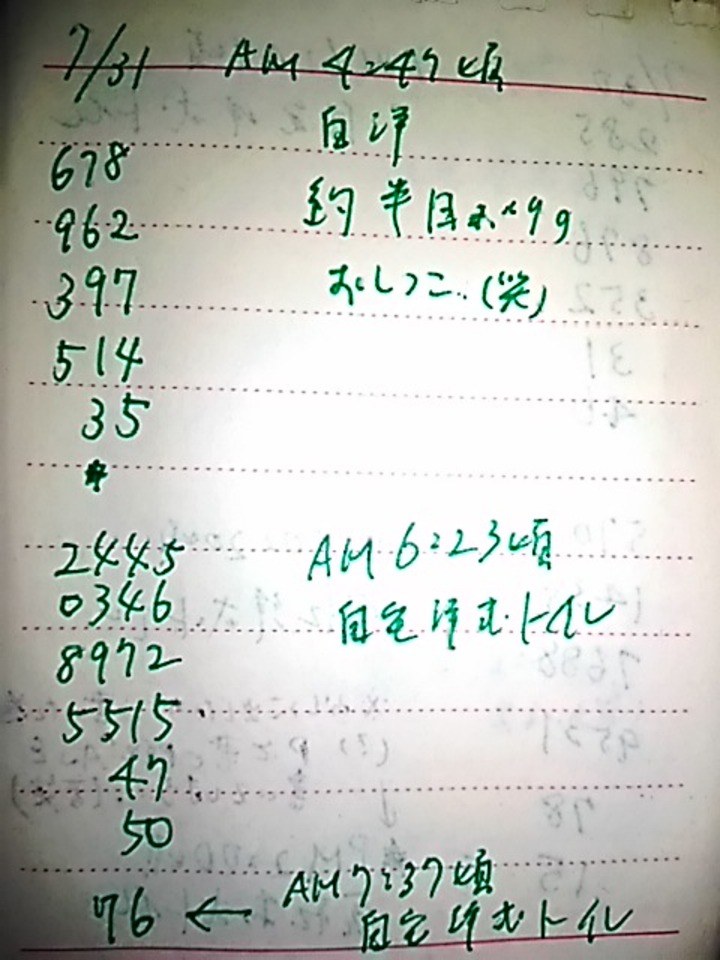 7/31 AM 4:47頃
自洋
678
約半目
962
397
おしっこ..(笑)
514
35
*
2445
AM 6:23頃
0346
自宅洋式トイレ
8972
5515
47
50
AM7:37頃
76 ←
自宅洋式トイレ